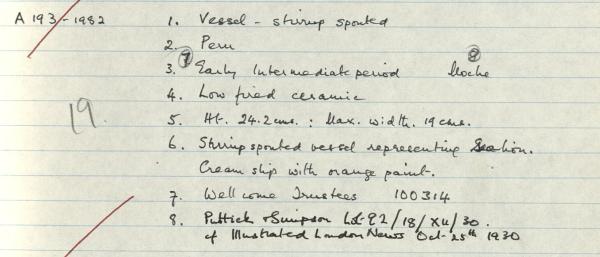 A 193-1982
1. Vessel - stirrup spouted
2. Peru
7 8
3. Early Intermediate period Moche
4. Low fired ceramic
19.
5. Ht. 24.2cms. : Max. width. 19cms.
6. Stirrup spouted vessel representing Sealion.
Cream slip with orange paint.
7. Wellcome Trustees 100314
8. Puttick & Simpson Lot 92/18/XII/30.
cf Illustrated London News Oct-25th 1930